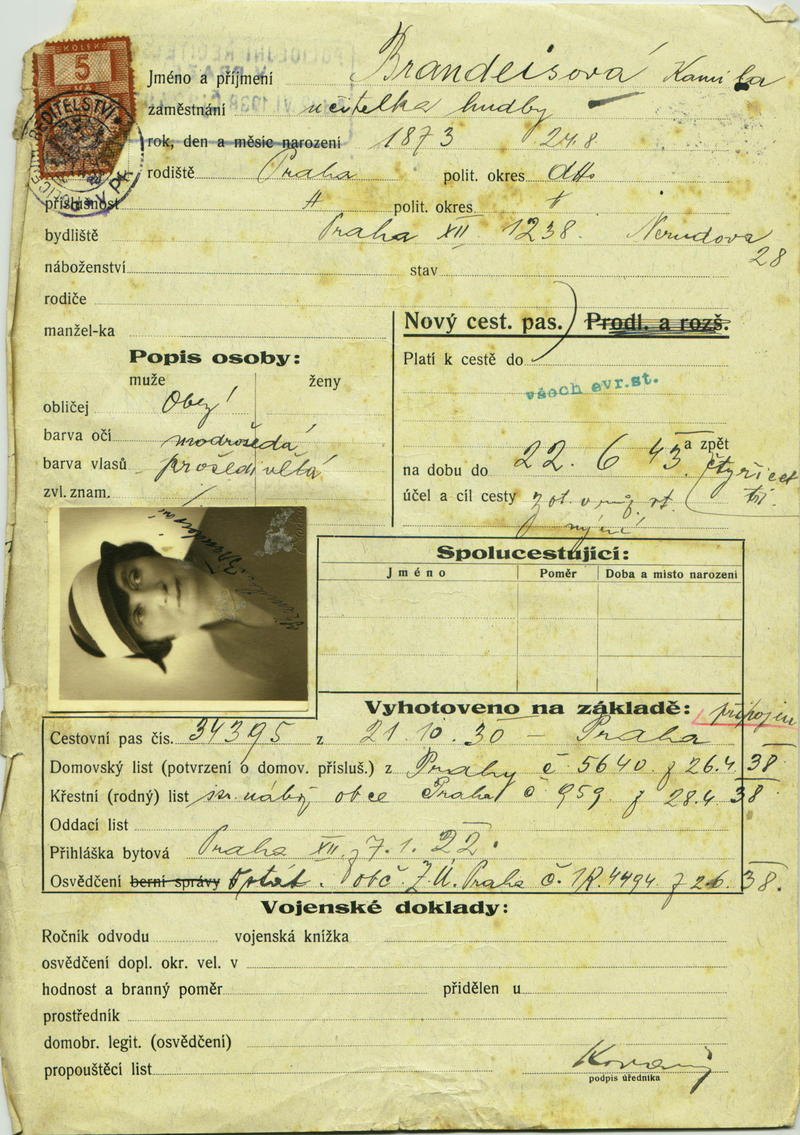 KOLEK
5
Kč
ŘEDITELSTVÍ
Jméno a příjmení Brandeisová Kamila
zaměstnání učitelka hudby
rok, den a měsíc narození 1873 24.8
rodiště Praha polit. okres dtto
příslušnost " polit. okres "
bydliště Praha XII. 1238. Nerudova
28
náboženství stav
rodiče
manžel-ka
Nový cest. pas. Prodl. a rozš.
Platí k cestě do
všech evr. st.
a zpět
na dobu do 22. 6 43 čtyřicet
tři
účel a cíl cesty
Popis osoby:
muže ženy
obličej
barva očí modrošedá
barva vlasů
zvl. znam.
Spolucestující:
Jméno Poměr Doba a místo narození
Vyhotoveno na základě: připojen
Cestovní pas čís. 34395 z 21.10.30 – Praha
Domovský list (potvrzení o domov. přísluš.) z Prahy č 5640 z 26.4 38
Křestní (rodný) list izr. nábož obce Praha č 959 z 28.4 38
Oddací list
Přihláška bytová Praha XII. z 7.1.22.
Osvědčení berní správy obč. Z.Ú. Praha č. 4494 z 2.6. 38.
Vojenské doklady:
Ročník odvodu vojenská knížka
osvědčení dopl. okr. vel. v
hodnost a branný poměr přidělen u
prostředník
domobr. legit. (osvědčení)
propouštěcí list
podpis úředníka